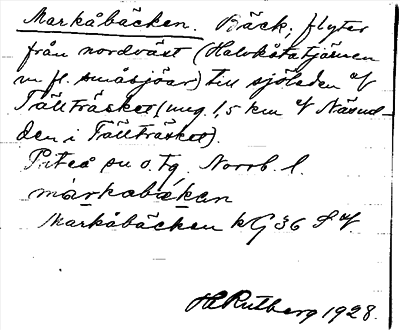 Markåbäcken. Bäck, flyter
från nordväst (Halvkåtatjärnen
m fl. småsjöar) till sjödelen af
Tällträsket (ung. 1,5 km af Näsud-
den i Tällträsket).
Piteå sn o. tg, Norrb. l.
màrkabäkən
Markåbäcken kG 36 S af.
HRutberg 1928.